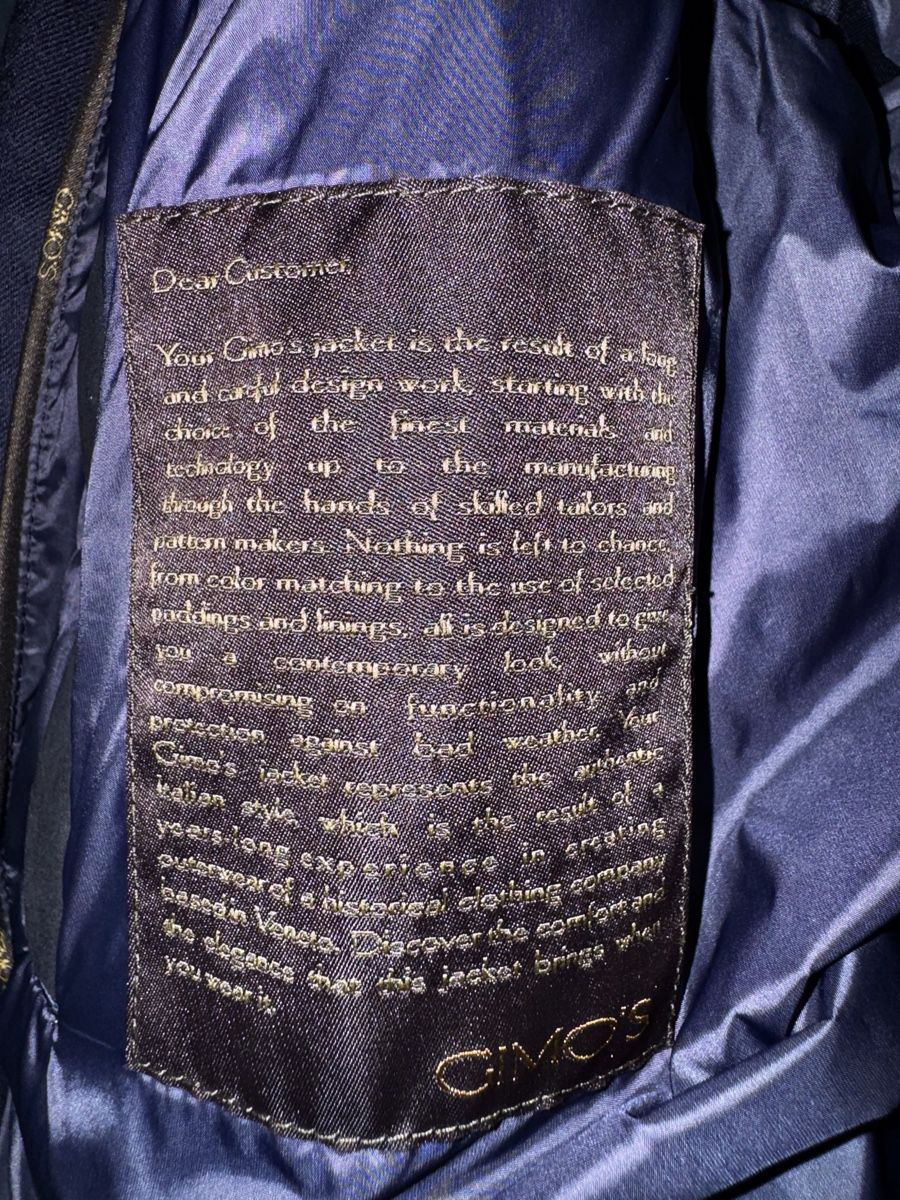 GIMO'S
Dear Customer,
Your Gimo's jacket is the result of a long
and careful design work, starting with the
choice of the finest materials and
technology up to the manufacturing
through the hands of skilled tailors and
pattern makers. Nothing is left to chance,
from color matching to the use of selected
paddings and linings, all is designed to give
you a contemporary look, without
compromising on functionality and
protection against bad weather. Your
Gimo's jacket represents the authentic
Italian style, which is the result of a
years-long experience in creating
outerwear of a historical clothing company
based in Veneto. Discover the comfort and
the elegance that this jacket brings when
you wear it.
GIMO'S